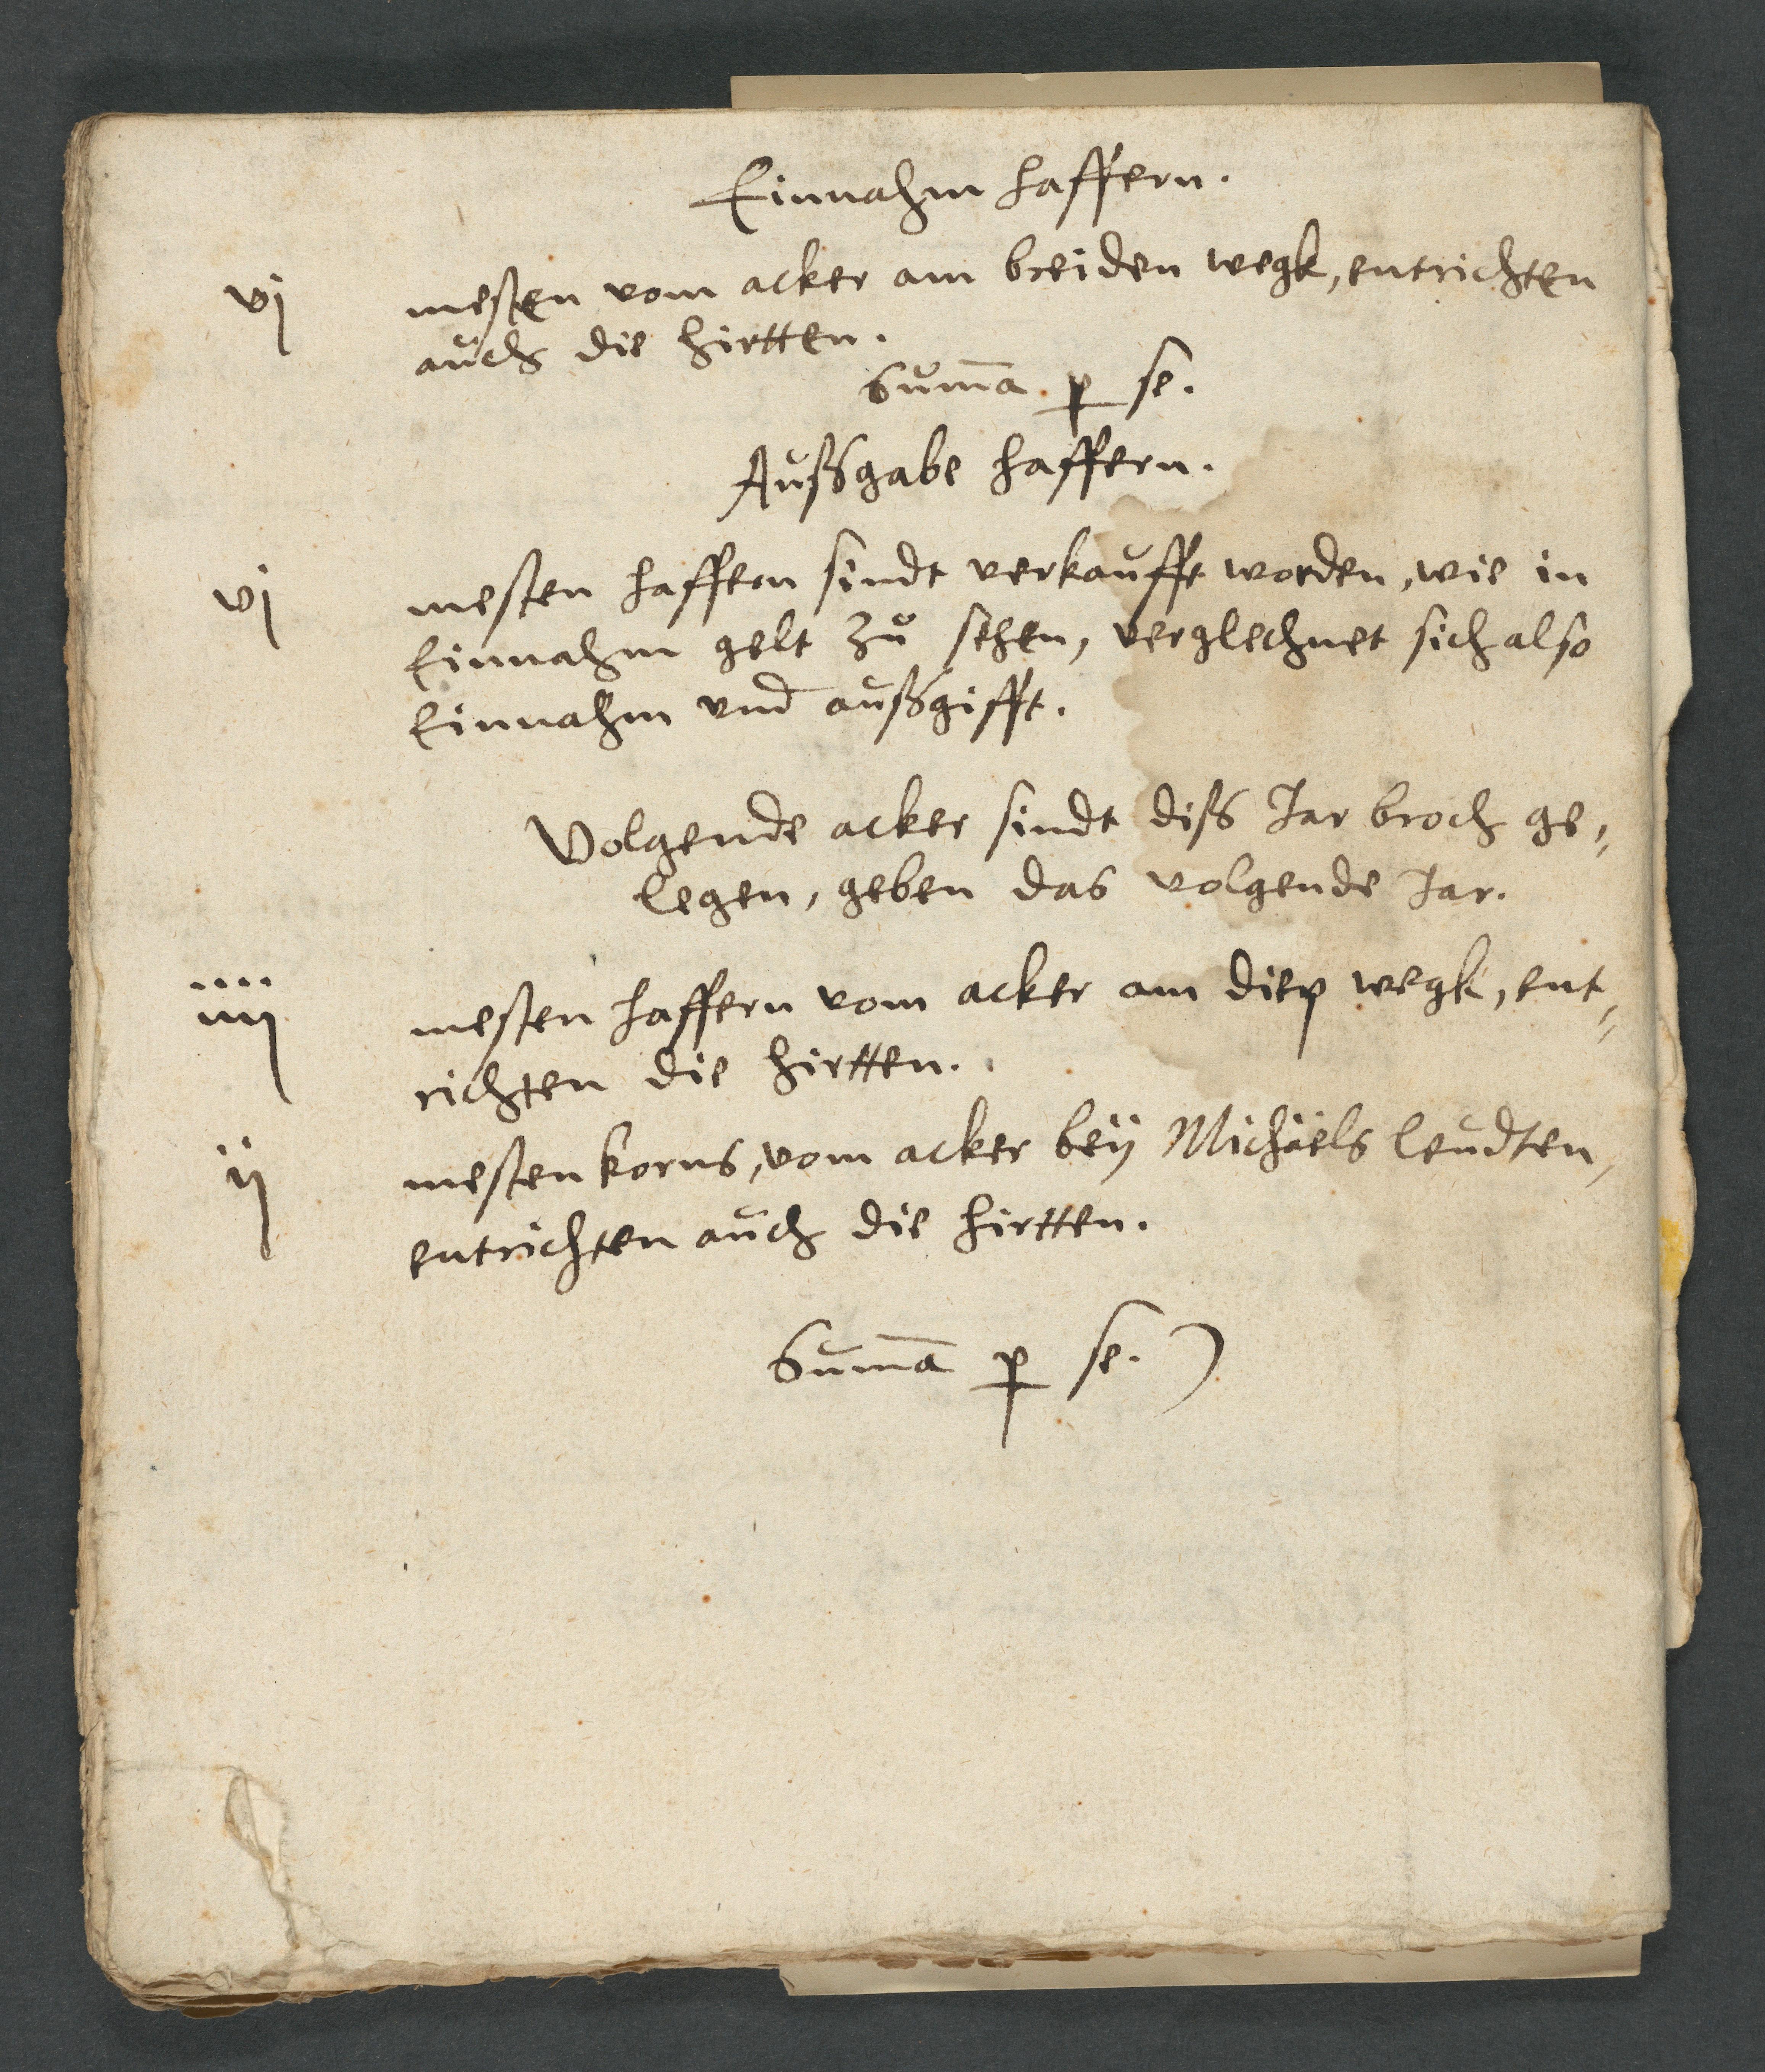 Einnahm haffern.
vj mesten vom acker am breiden wegk, entrichten
auch die hirtten.
Sum̄a p se.
Außgabe haffern.
vj mesten haffern sindt verkaufft worden, wie in
Einnahm gelt zu sehen, verglechnet sich also
Einnahm vnd außgifft.
Volgende acker sindt diß Jar broch ge„
legen, geben das volgende Jar.
iiij mesten haffern vom acker am diep wegk, ent„
richten die hirtten.
ij mesten korns, vom acker beÿ Michaels leudten,
entrichten auch die hirtten.
Sum̄a p se.